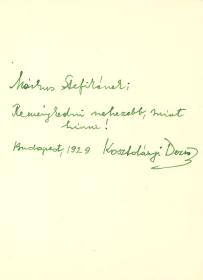 Márkus Stefikének:
Reménykedni nehezebb, mint
hinni!
Budapest, 1929 Kosztolányi Dezső